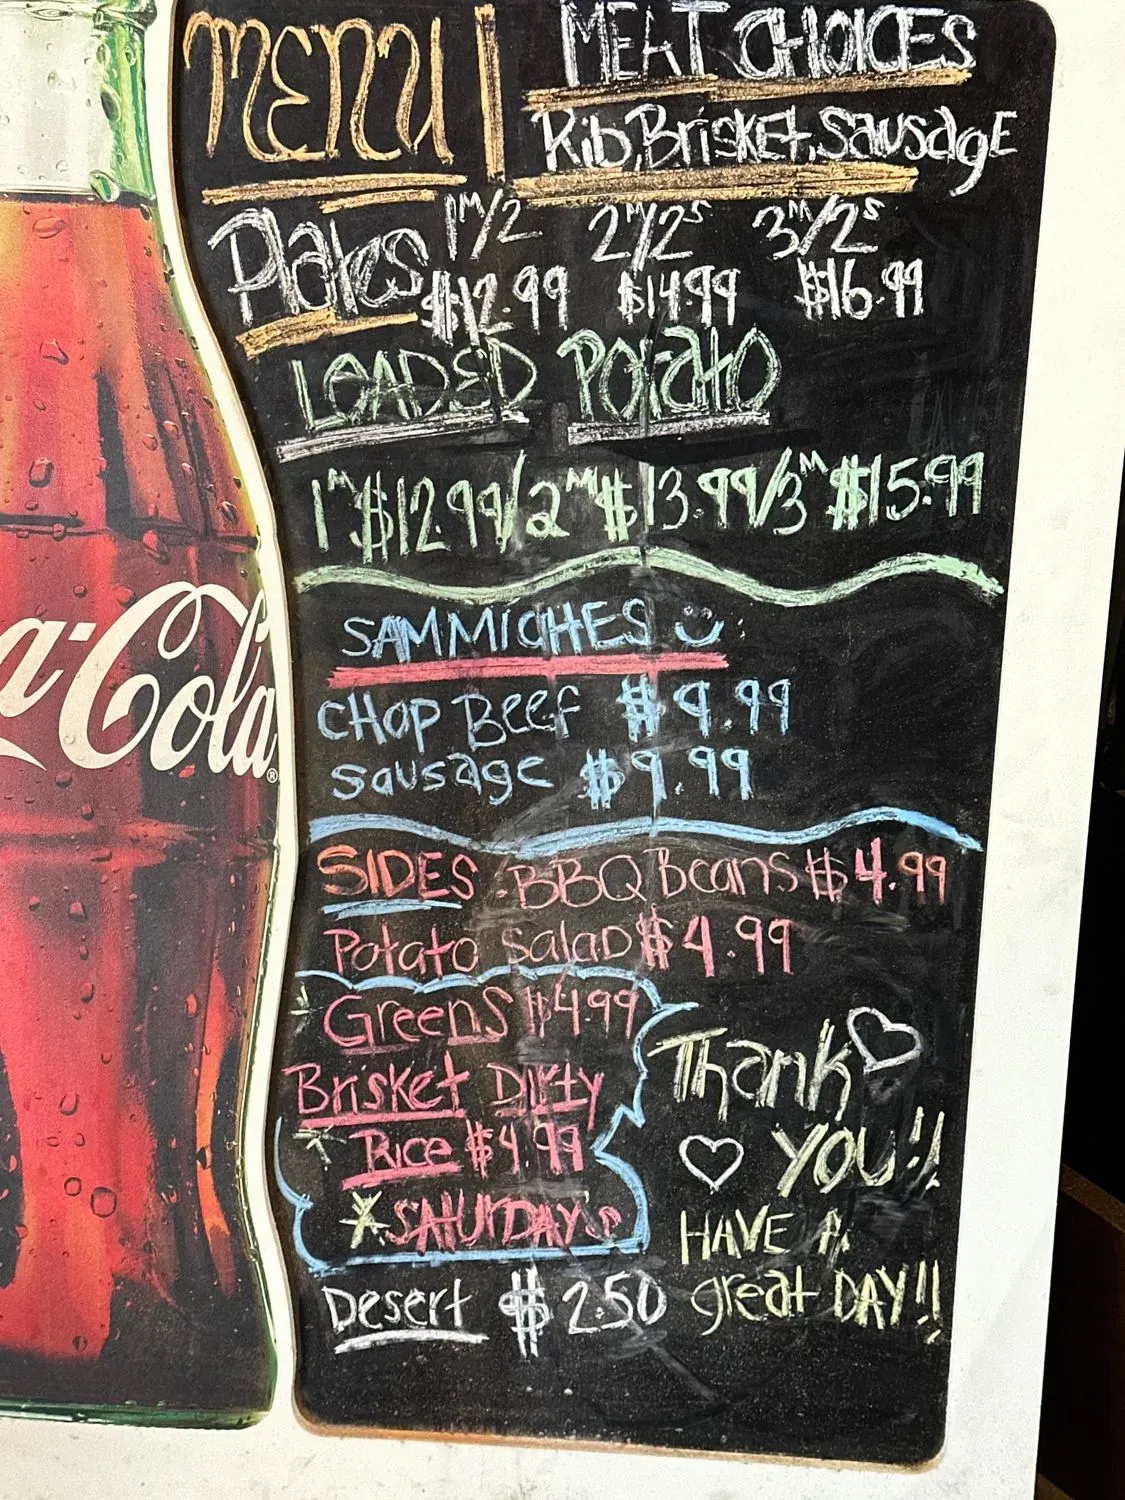 MENU
MEAT CHOICES
Rib, Brisket, Sausage
Plates 1M/2 2M/2s 3M/2s
$12.99 $14.99 $16.99
LOADED POtatO
1M $12.99/2M $13.99/3M $15.99
SAMMICHES
CHOP BEEF $9.99
sausage $9.99
SIDES: BBQ Beans $4.99
Potato salad $4.99
Greens $4.99
Brisket Dirty
Rice $4.99
SAtURDAY's
Desert $2.50
Thank
YOU!!
HAVE A
great DAY!!
a-Cola®